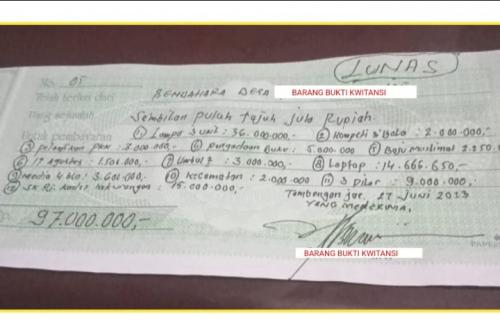 LUNAS
No. 05
Telah terima dari BENDAHARA DESA BARANG BUKTI KWITANSI
Uang sejumlah Sembilan puluh tujuh juta Rupiah
Untuk pembayaran ① Lampu 3 unit : 36.000.000,- ② Kompeti S Bola : 2.000.000,-
③ pelantikan PKK : 2.000.000,- ④ pengadaan buku : 5.000.000 ⑤ Baju muslimat 2.250.
⑥ 17 Agustus : 1.500.000,- ⑦ : 3.000.000,- ⑧ Laptop : 14.666.650,-
⑨ media : 3.600.000,- ⑩ kecamatan : 2.000.000 ⑪ 3 pilar : 9.000.000,-
⑫ SK kekurangan : 15.000.000,-
Tambangan jae, 27 JUNI 2023
YANG MENERIMA,
97.000.000,-
BARANG BUKTI KWITANSI